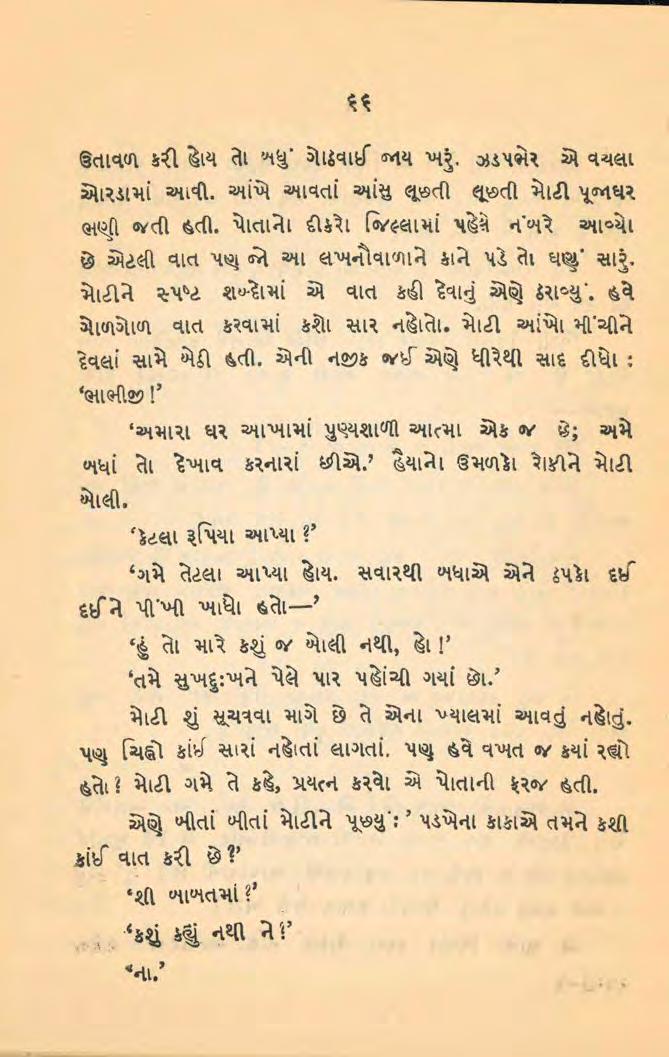 ૬૬
ઉતાવળ કરી હોય તો બધું ગોઠવાઈ જાય ખરું. ઝડપભેર એ વચલા
ઓરડામાં આવી. આંખે આવતાં આંસુ લૂછતી લૂછતી મોટી પૂજાઘર
ભણી જતી હતી. પોતાનો દીકરો જિલ્લામાં પહેલે નંબરે આવ્યો
છે એટલી વાત પણ જો આ લખનૌવાળાને કાને પડે તો ઘણું સારું.
મોટીને સ્પષ્ટ શબ્દોમાં એ વાત કહી દેવાનું એણે ઠરાવ્યું. હવે
ગોળગોળ વાત કરવામાં કશો સાર નહોતો. મોટી આંખો મીંચીને
દેવલાં સામે બેઠી હતી. એની નજીક જઈ એણે ધીરેથી સાદ દીધો :
‘ભાભીજી !’
‘અમારા ઘર આખામાં પુણ્યશાળી આત્મા એક જ છે; અમે
બધાં તો દેખાવ કરનારાં છીએ.’ હૈયાનો ઉમળકો રોકીને મોટી
બોલી.
‘કેટલા રૂપિયા આપ્યા ?’
‘ગમે તેટલા આપ્યા હોય. સવારથી બધાએ એને ઠપકો દઈ
દઈને પીંખી ખાધો હતો—’
‘હું તો મારે કશું જ બોલી નથી, હો !’
‘તમે સુખદુ:ખને પેલે પાર પહોંચી ગયાં છો.’
મોટી શું સૂચવવા માગે છે તે એના ખ્યાલમાં આવતું નહોતું.
પણ ચિહ્નો કાંઈ સારાં નહોતાં લાગતાં. પણ હવે વખત જ કયાં રહ્યો
હતો? મોટી ગમે તે કહે, પ્રયત્ન કરવો એ પોતાની ફરજ હતી.
એણે બીતાં બીતાં મોટીને પૂછ્યું:’ પડખેના કાકાએ તમને કશી
કાંઈ વાત કરી છે?’
‘શી બાબતમાં?’
‘કશું કહ્યું નથી ને?’
‘ના.’